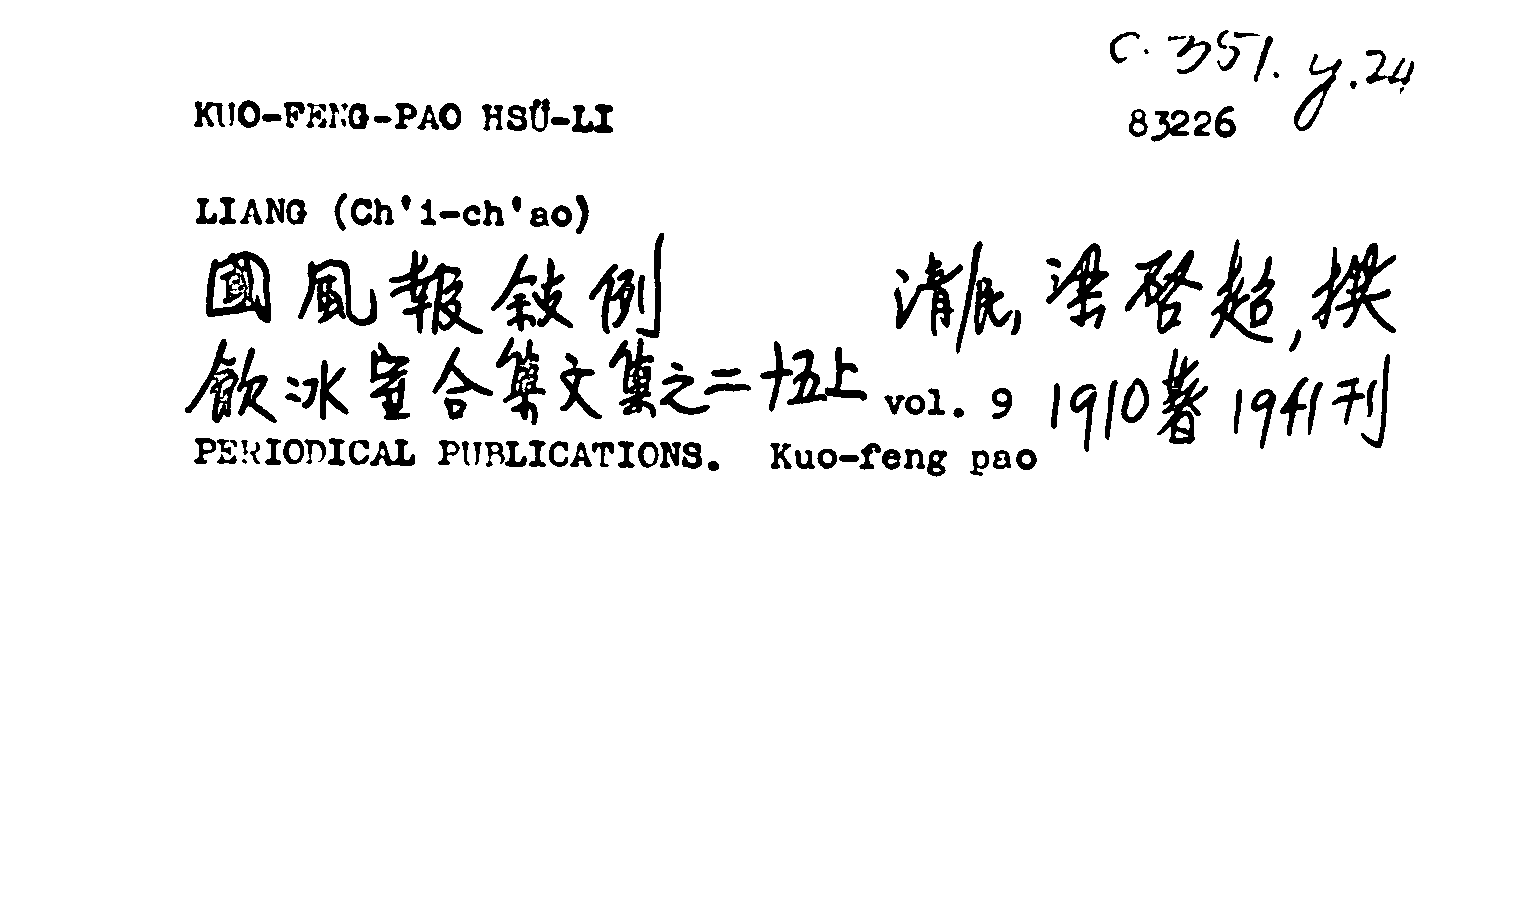 C.351.y.24
KUO-FENG-PAO HSÜ-LI 83226
LIANG (Ch'i-ch'ao)
國風報敍例 清/民, 梁啓超, 撰
飲冰室合集文集之二十五上 vol. 9 1910著 1941刊
PERIODICAL PUBLICATIONS. Kuo-feng pao